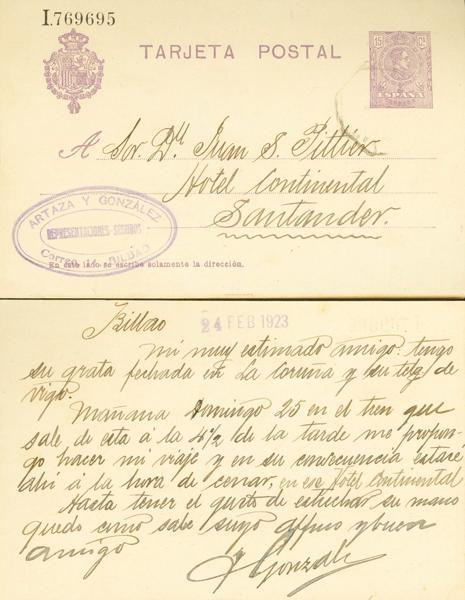 I.769695
TARJETA POSTAL
15 Cs
ESPAÑA
A Sor. Dn. Juan S.
Hotel Continental
Santander.
ARTAZA Y GONZALEZ
REPRESENTACIONES-SEGUROS
Correo, 14 BILBAO
En este lado se escribe solamente la dirección.
Bilbao
24 FEB 1923
Mi muy estimado amigo: tengo
su grata fechada en La Coruña y su de
vigo.
Mañana Domingo 25 en el tren que
sale de esta á la 4½ de la tarde me propon-
go hacer mi viaje y en su consecuencia estaré
ahi á la hora de cenar, en ese Hotel Continental
Hasta tener el gusto de estrechar su mano
quedo como sabe suyo affmo y buen
amigo
Gonzalez